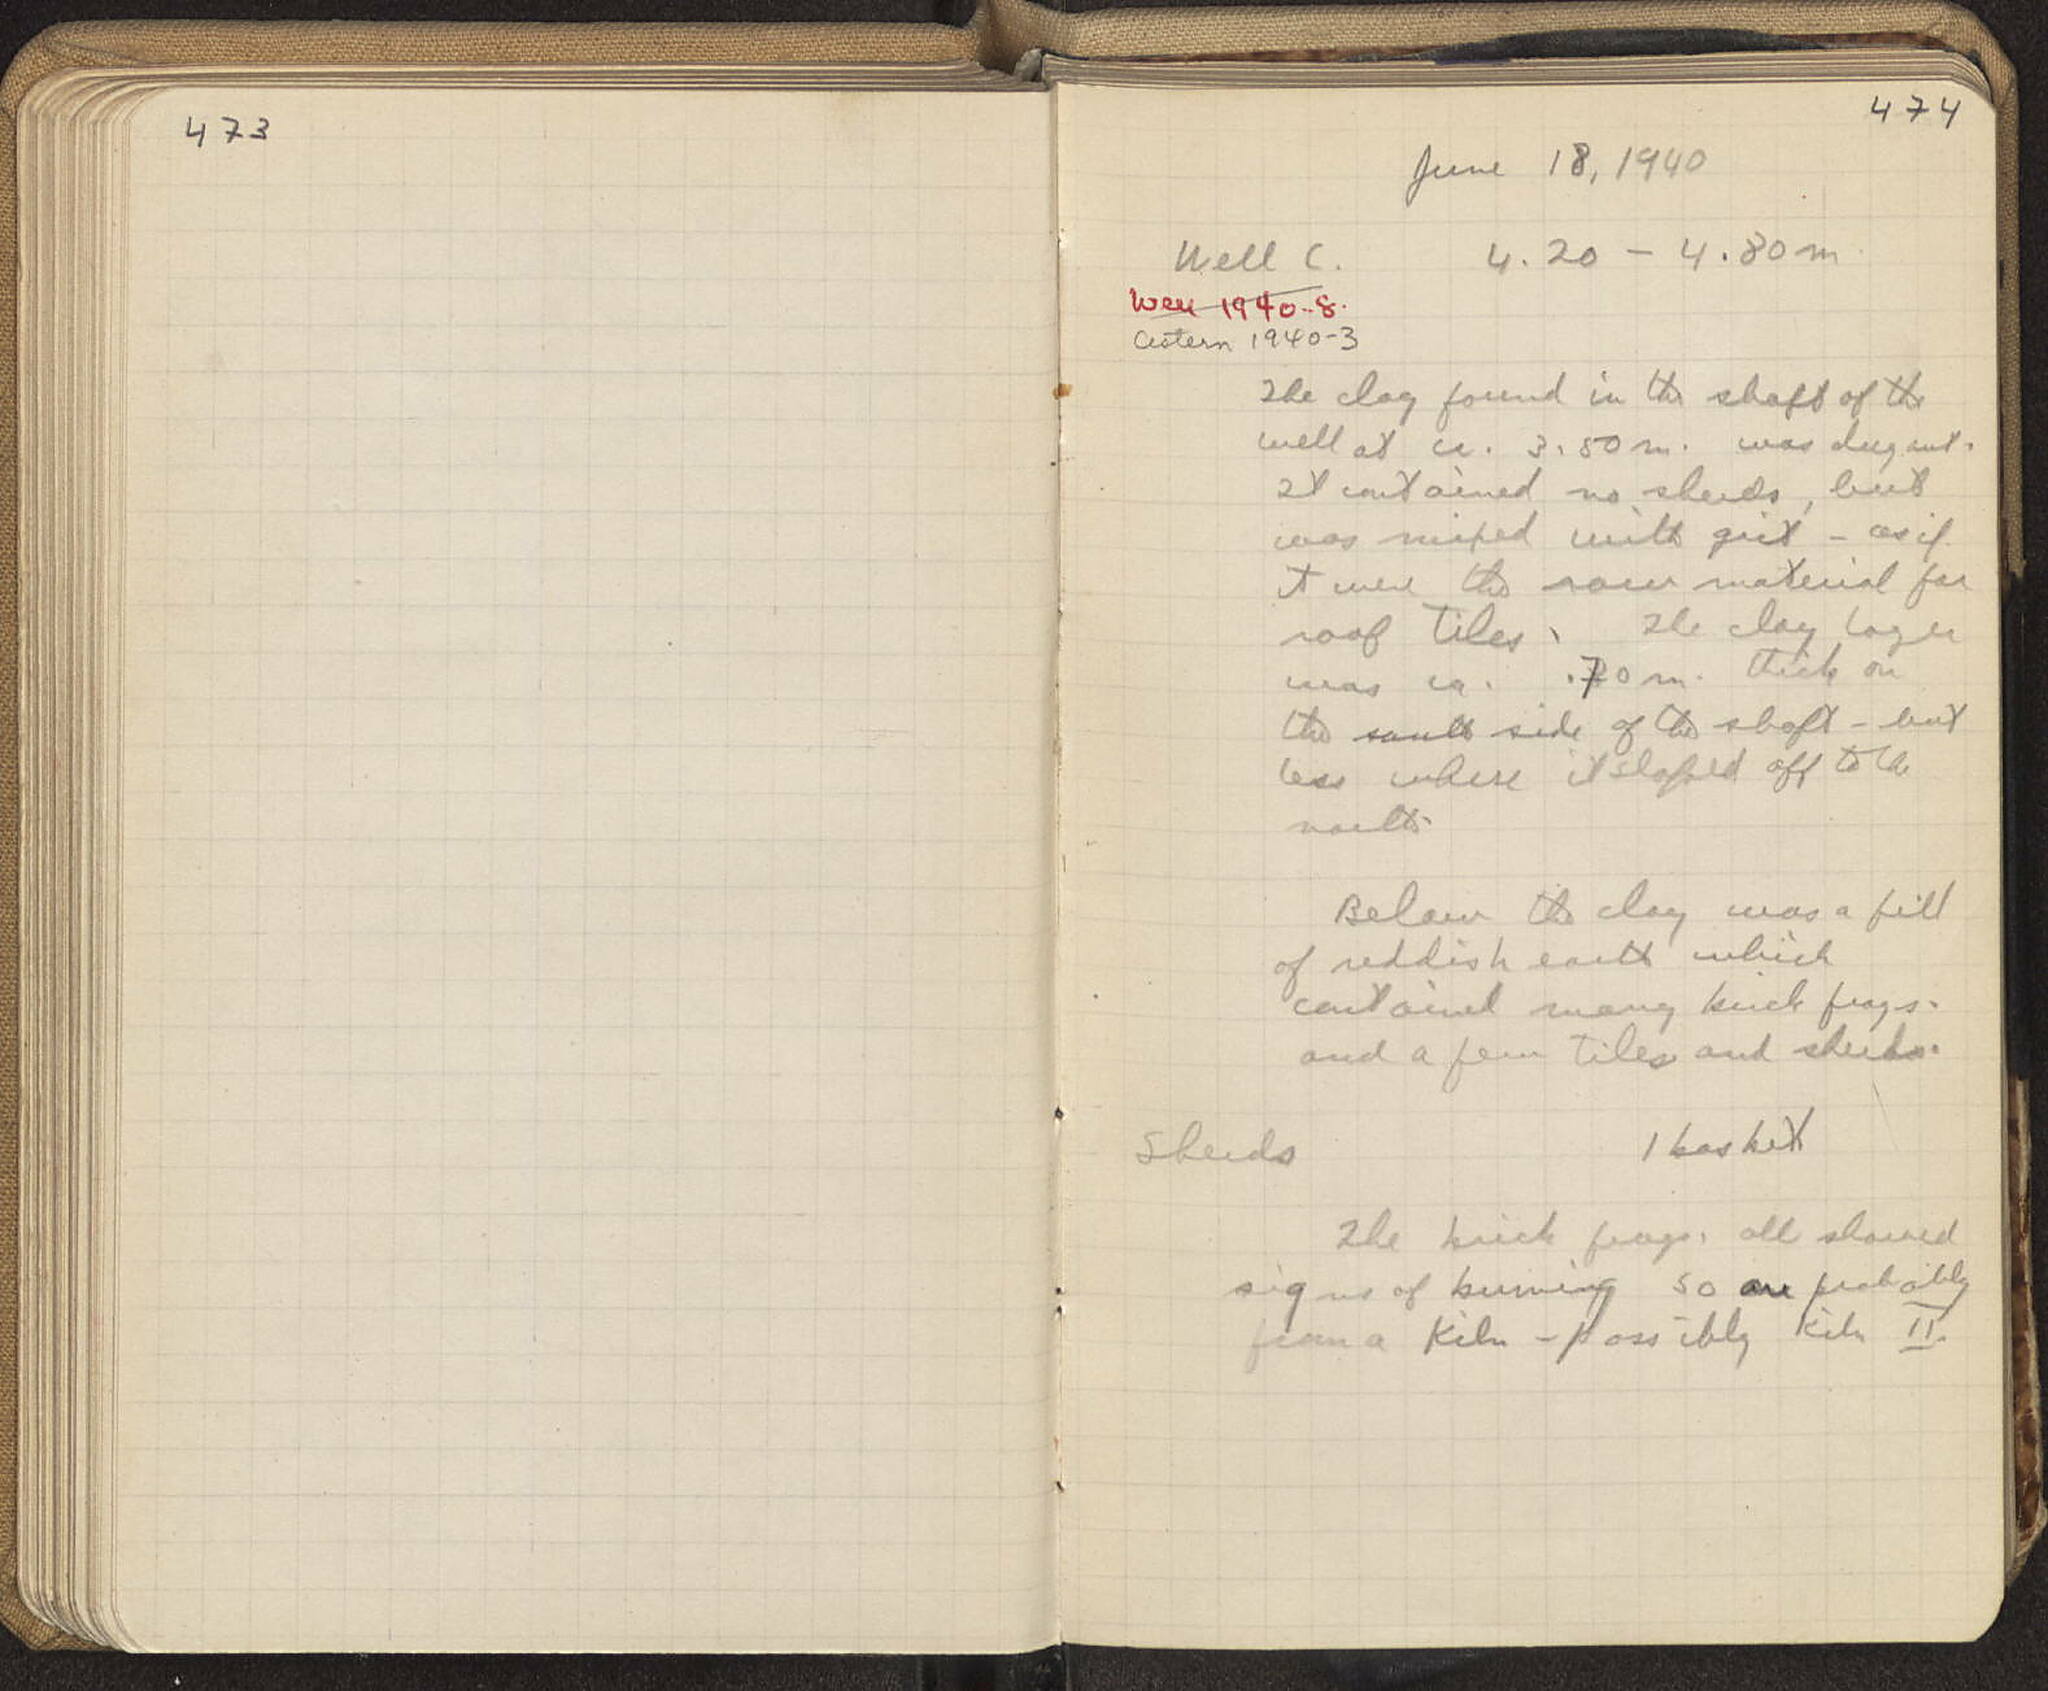 473
474
June 18, 1940
Well C. 4.20 - 4.80 m.
Well 1940-8.
Cistern 1940-3
The clay found in the shaft of the
well at ca. 3.50 m. was dug out.
It contained no sherds, but
was mixed with grit - as if
it were the raw material for
roof tiles. The clay layer
was ca. .70 m. thick on
the south side of the shaft - but
less where it sloped off to the
north.
Below the clay was a fill
of reddish earth which
contained many brick frags.
and a few tiles and sherds.
Sherds 1 basket
The brick frags. all showed
signs of burning so are probably
from a kiln - possibly kiln II.